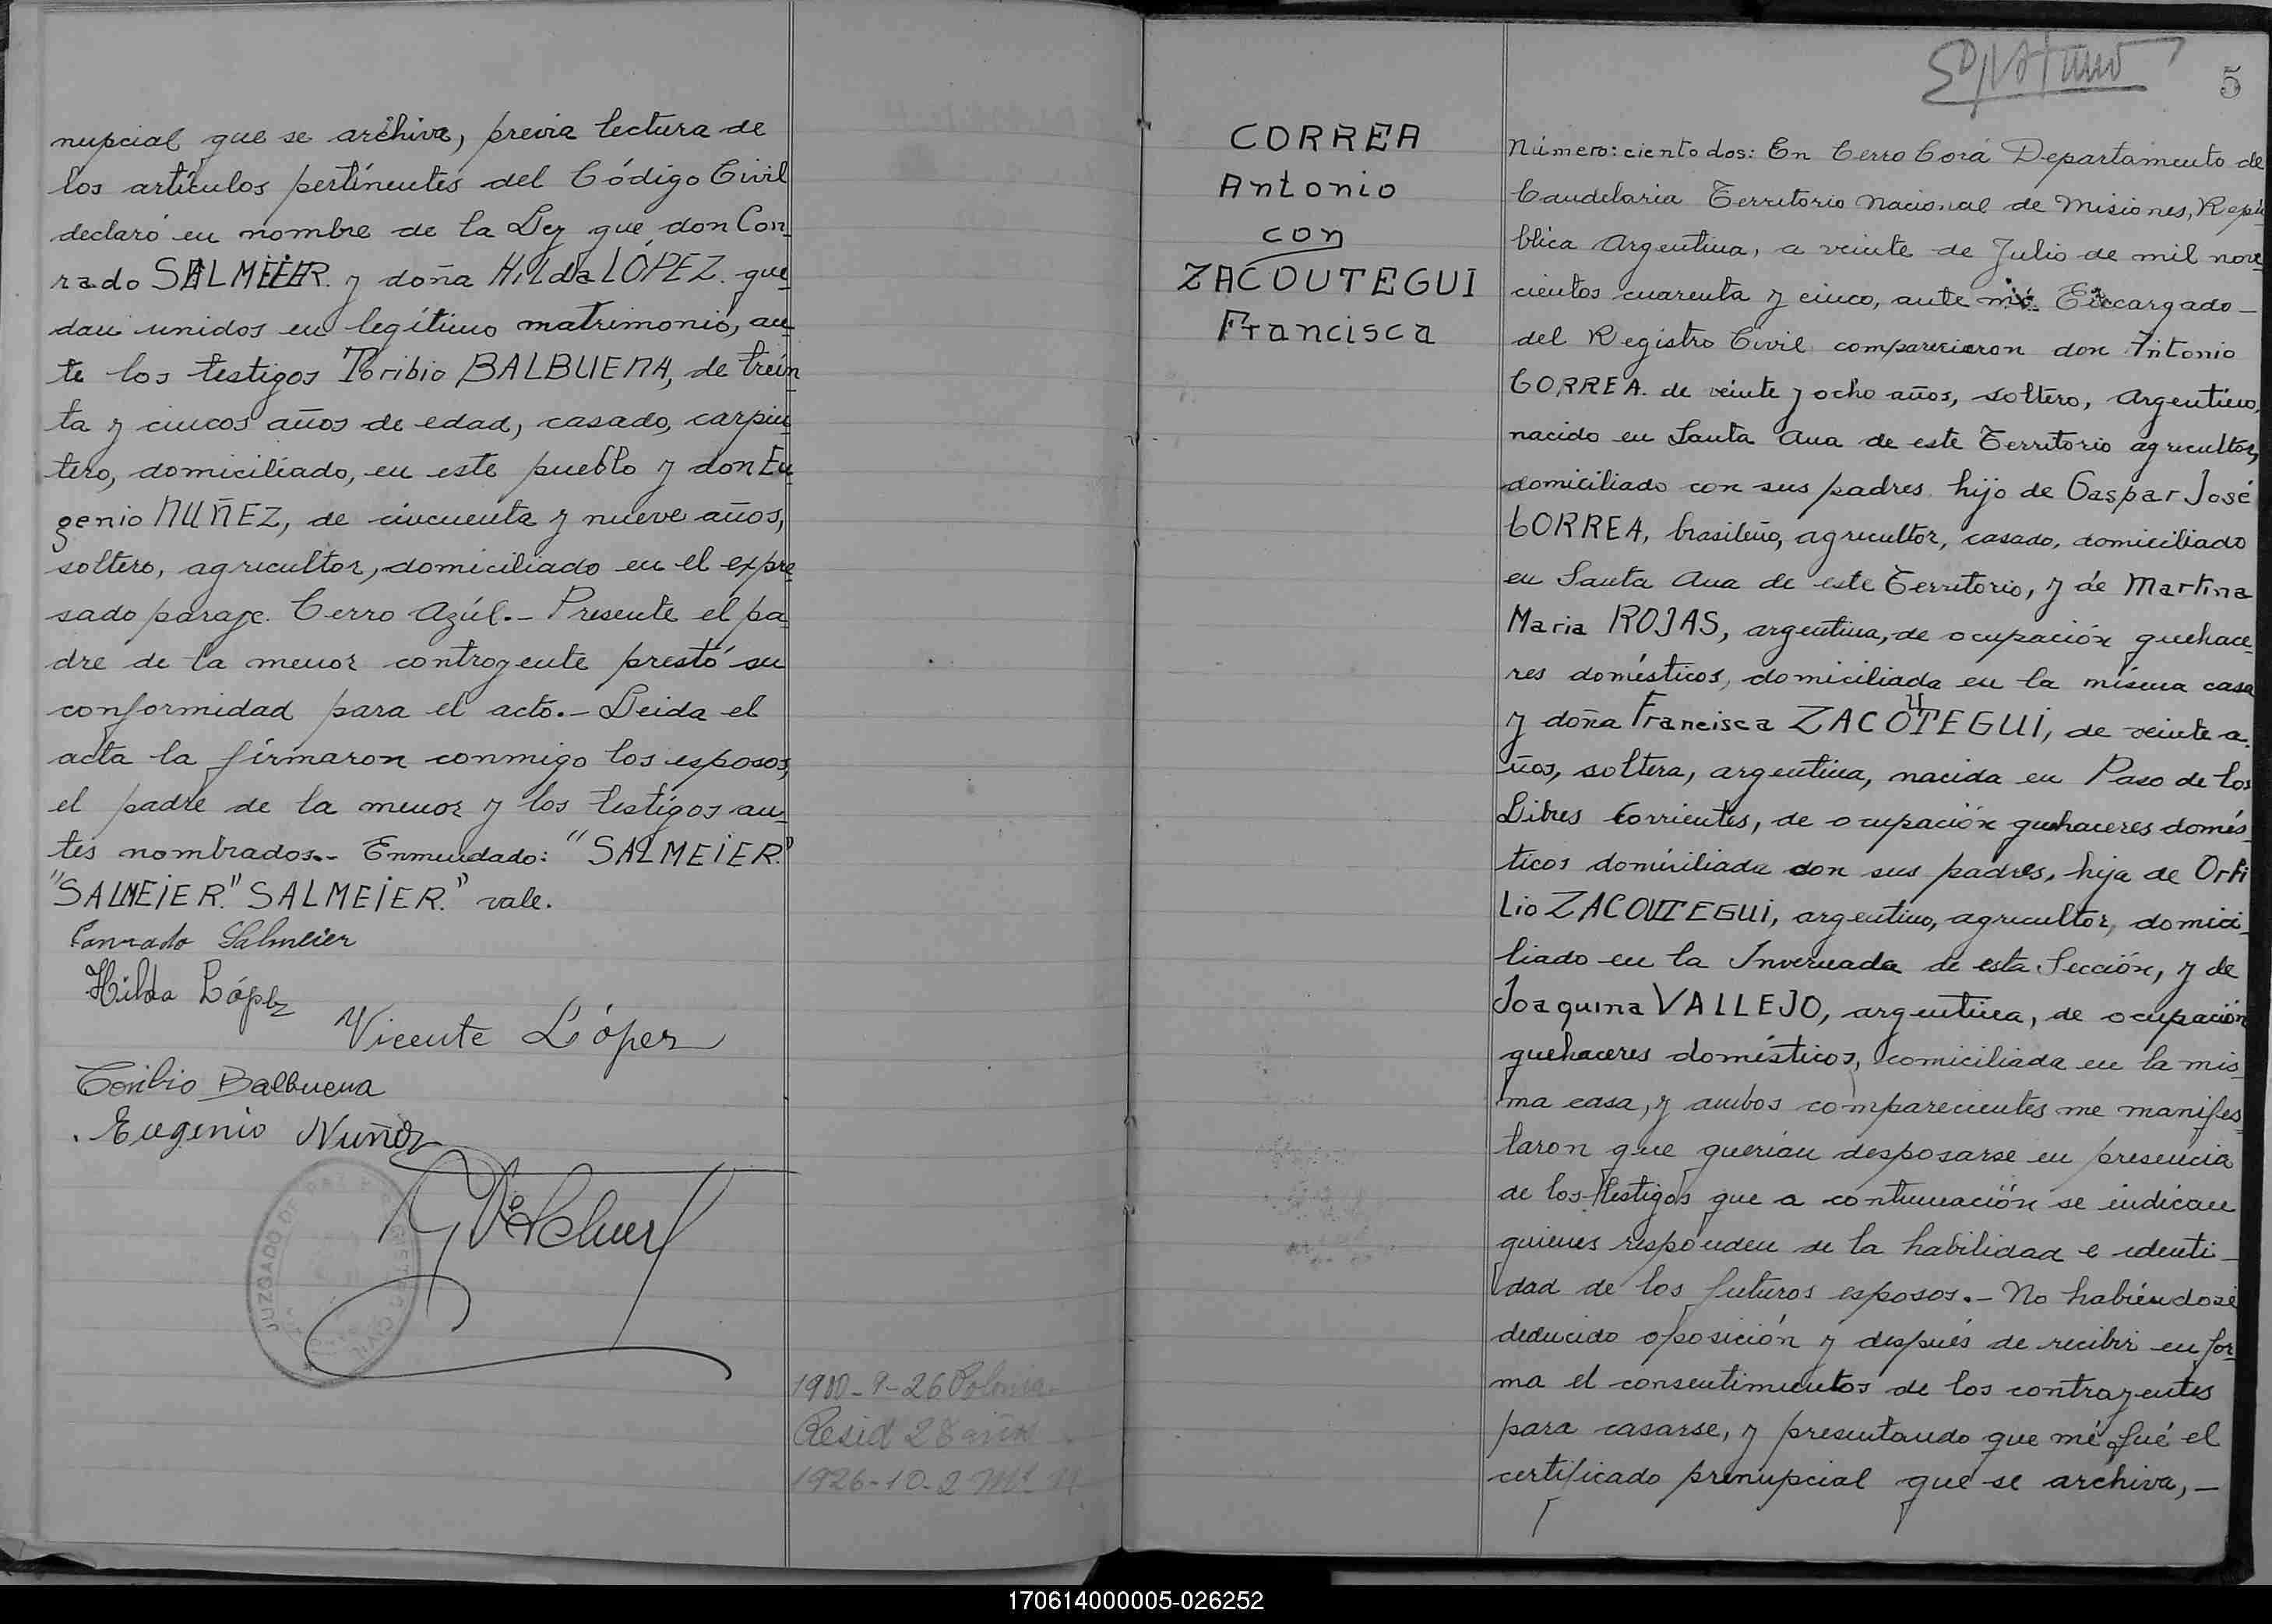 nupcial que se archiva, previa lectura de
los artículos pertínentes del Código Civil
declaró en nombre de la Ley que don Con_
rado SALMEIER. y doña HILda LÓPEZ. que_
dan unidos en legítimo matrimonio, an_
te los testigos Toribio BALBUENA, de trein
ta y cincos años de edad, casado, carpin_
tero, domiciliado, en este pueblo y don Eu_
genio NUÑEZ, de cincuenta y nueve años,
soltero, agricultor, domiciliado en el expre_
sado paraje. Cerro Azúl.- Presente el pa_
dre de la menor controyente prestó su
conformidad para el acto.- Leida el
acta la firmaron conmigo los esposos,
el padre de la menor y los testigos an_
tes nombrados.- Enmendado: "SALMEIER."
"SALMEIER." SALMEIER." vale.
Conrado Salmeier
Hilda López
Vicente López
Toribio Balbuena
Eugenio Nuñez
JUZGADO DE PAZ Y REGISTRO CIVIL
1900-9-26 Polonia
Resid 28 años
1926-10-2
5
CORREA
Antonio
con
ZACOUTEGUI
Francisca
Número: ciento dos: En Cerro Corá Departamento de
Candelaria Territorio Nacional de Misiones, Repú
blica Argentina, a veinte de Julio de mil nove_
cientos cuarenta y cinco, ante mí Encargado_
del Registro Civil comparecieron don Antonio
CORREA. de veinte y ocho años, soltero, Argentino,
nacido en Santa Ana de este Territorio agricultor,
domiciliado con sus padres. hijo de Gaspar José
CORREA, brasileño, agricultor, casado, domiciliado
en Santa Ana de este Territorio, y de Martina
Maria ROJAS, argentina, de ocupación quehace_
res domésticos, domiciliada en la misma casa
y doña Francisca ZACOUTEGUI, de veinte a_
ños, soltera, argentina, nacida en Paso de los
Libres Corrientes, de ocupación quehaceres domés_
ticos domiciliada con sus padres, hija de Orfi
Lio ZACOUTEGUI, argentino, agricultor, domici_
liado en la Invernada de esta Sección, y de
Joaquina VALLEJO, argentina, de ocupación
quehaceres domésticos, domiciliada en la mis_
ma casa, y ambos comparecientes me manifes_
taron que querian desposarse en presencia
de los testigos que a continuación se indican
quienes responden de la habilidad e identi_
dad de los futuros esposos.- No habiéndose
deducido oposición y después de recibir en for_
ma el consentimientos de los contrayentes
para casarse, y presentando que mé fué el
certificado prenupcial que se archiva,-
170614000005-026252